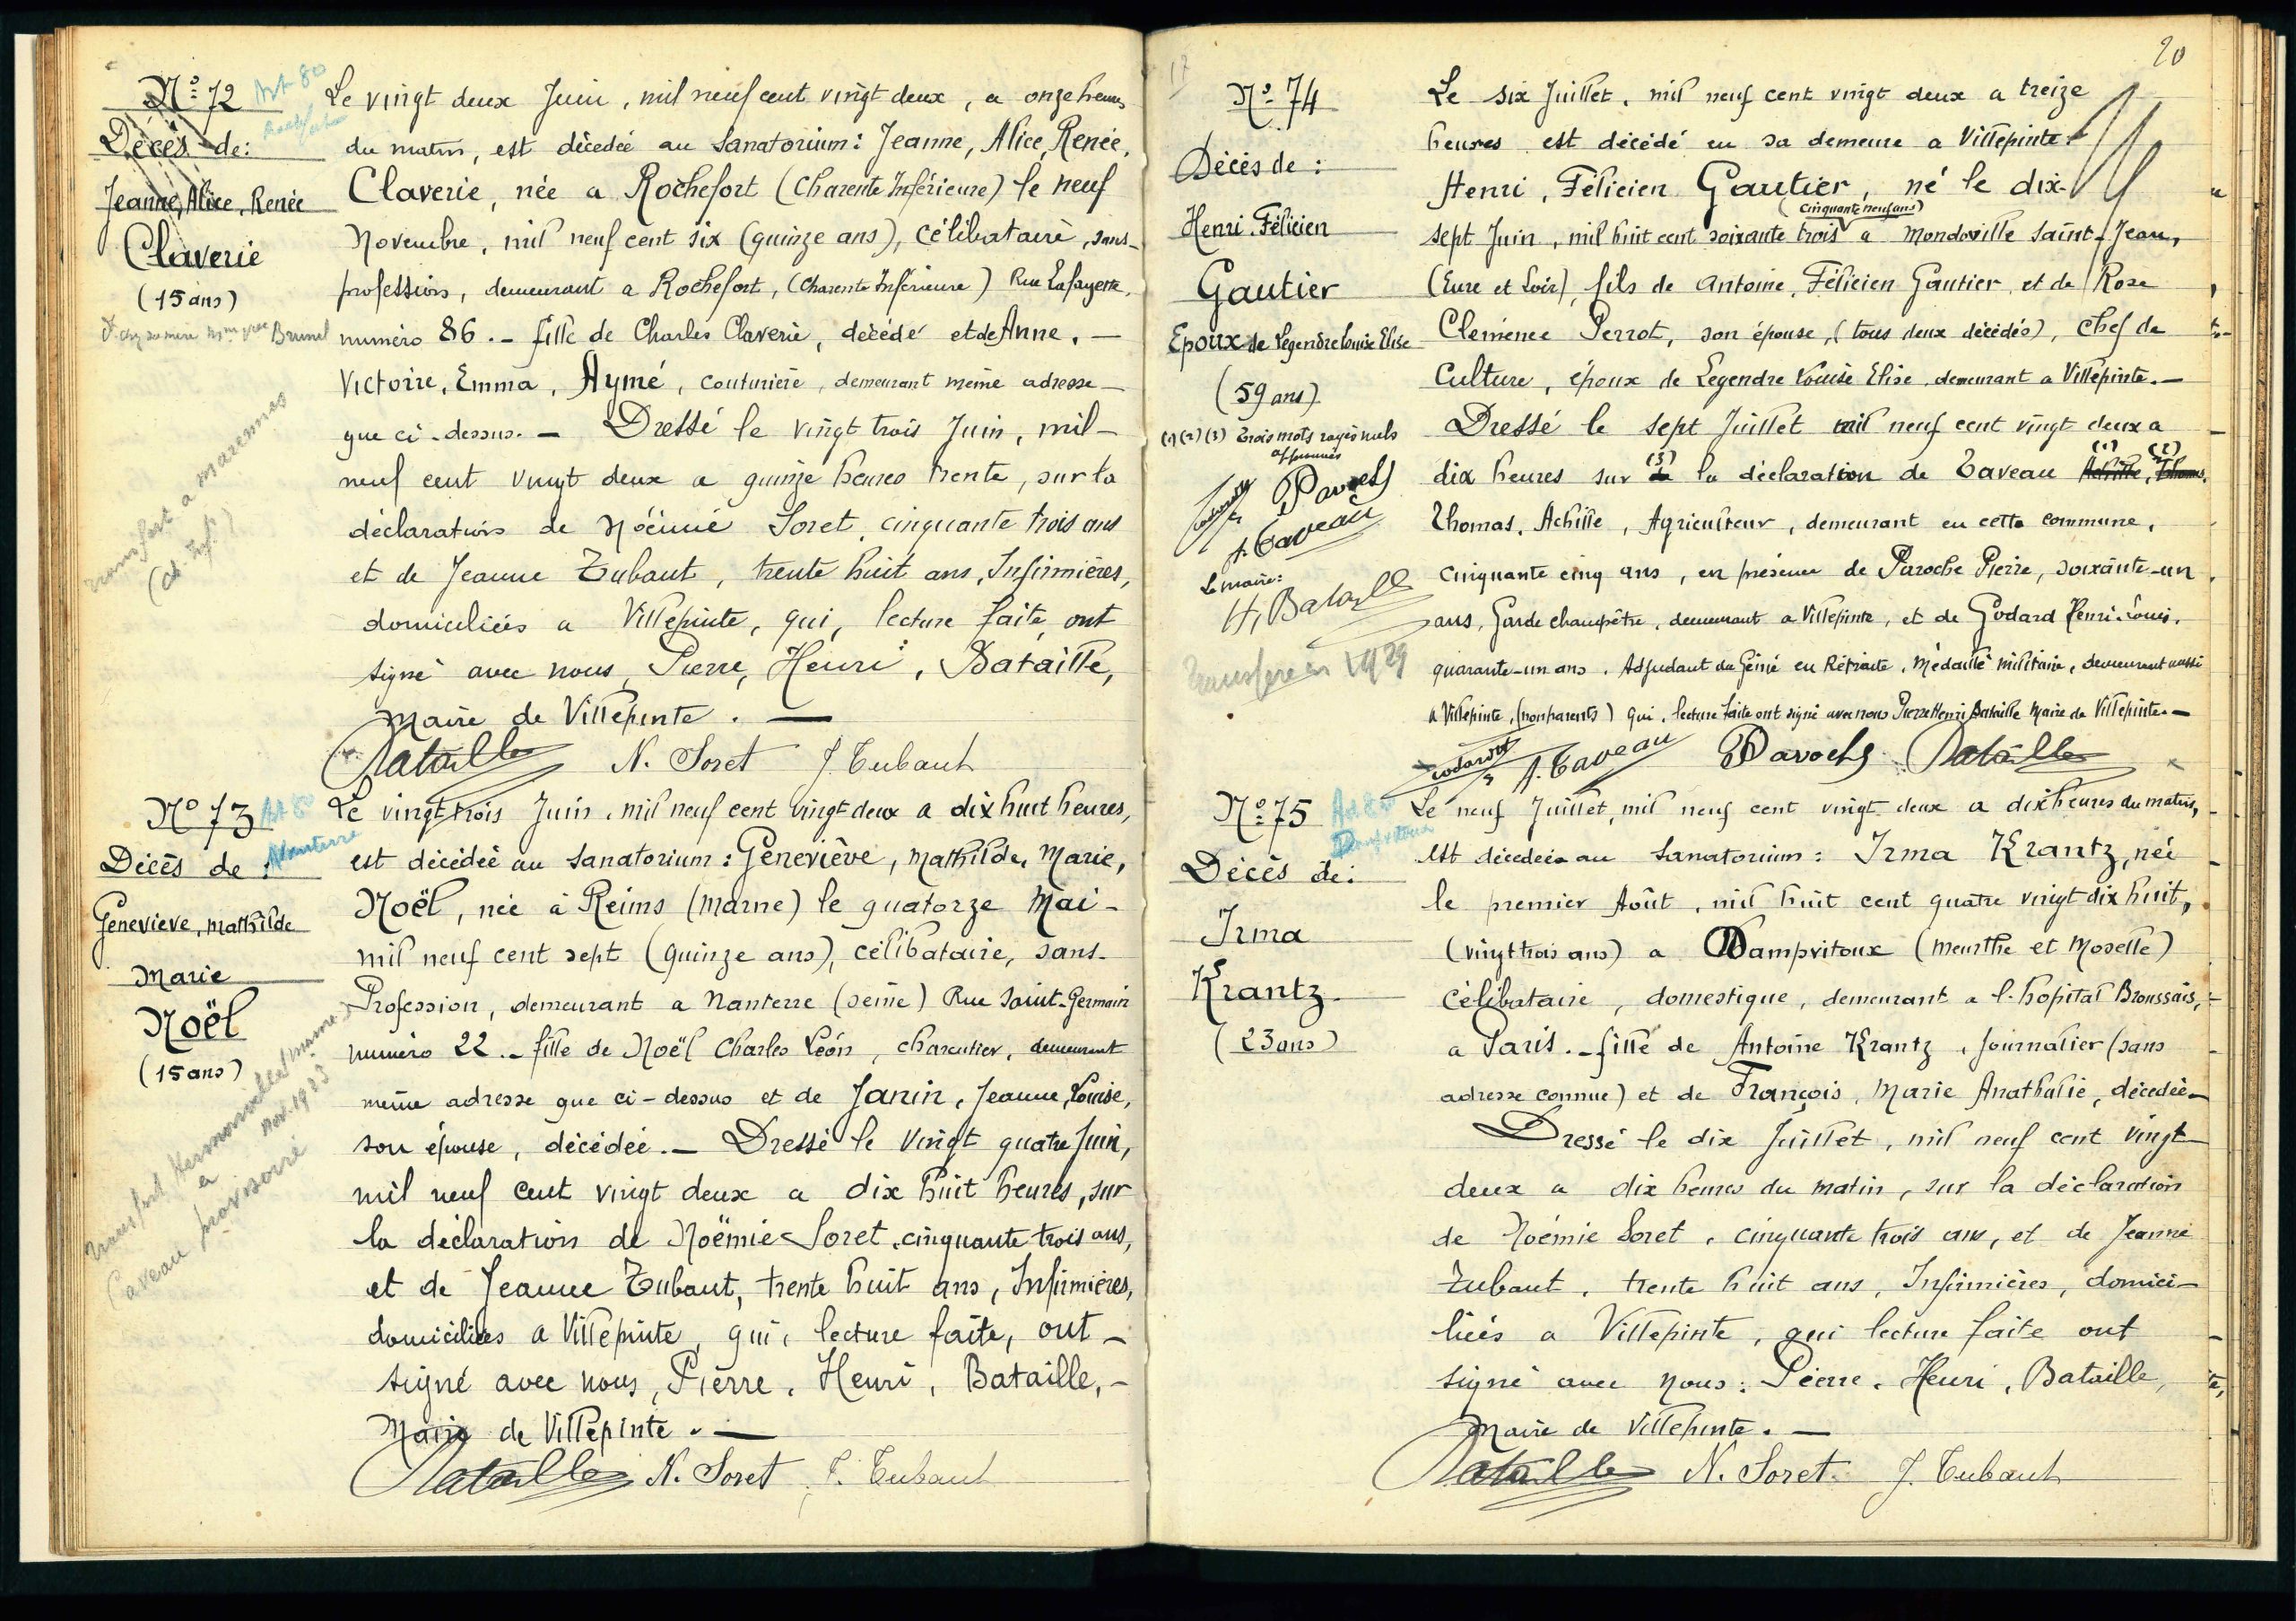 Nº 72
Art 80
Décès de:
Jeanne, Alice, Renée
Claverie
(15 ans)
Brunel
transfert a marennes
(ch. Infre)
Le vingt deux Juin, mil neuf cent vingt deux, a onze heures
du matin, est décédée au Sanatorium: Jeanne, Alice, Renée,
Claverie, née a Rochefort (Charente Inférieure) le neuf
Novembre, mil neuf cent six (quinze ans), célibataire, sans-
profession, demeurant a Rochefort, (Charente Inférieure) Rue Lafayette,
numéro 86.- fille de Charles Claverie, décédé et de Anne,-
Victoire, Emma, Aymé, couturière, demeurant même adresse-
que ci-dessus.- Dressé le vingt trois Juin, mil-
neuf cent vingt deux a quinze heures trente, sur la
déclaration de Noëmie Soret, cinquante trois ans
et de Jeanne Tubaut, trente huit ans, Infirmières,
domiciliées a Villepinte, qui, lecture faite, ont
signé avec nous, Pierre, Henri, Bataille,
Maire de Villepinte.-
Bataille N. Soret J. Tubaut
Nº 73
Art 80
Nanterre
Décès de:
Geneviève, Mathilde
Marie
Noël
(15 ans)
transfert Hermonville Marne
a Nov. 1923
Caveau provisoire
Le vingt trois Juin, mil neuf cent vingt deux a dix huit heures,
est décédée au Sanatorium: Geneviève, Mathilde, Marie,
Noël, née à Reims (Marne) le quatorze Mai-
mil neuf cent sept (quinze ans), célibataire, sans-
Profession, demeurant a Nanterre (Seine) Rue Saint-Germain
numéro 22.- fille de Noël Charles Léon, charcutier, demeurant
même adresse que ci-dessus et de Janin, Jeanne, Louise,
son épouse, décédée.- Dressé le vingt quatre Juin,
mil neuf cent vingt deux a dix huit heures, sur
la déclaration de Noëmie Soret, cinquante trois ans,
et de Jeanne Tubaut, trente huit ans, Infirmières,
domiciliées a Villepinte, qui, lecture faite, ont-
signé avec nous, Pierre, Henri, Bataille,-
Maire de Villepinte.-
Bataille N. Soret J. Tubaut
17
20
Nº 74
Décès de:
Henri, Félicien
Gautier
Epoux de Legendre Louise Elise
(59 ans)
(1) (2) (3) Trois mots rayés nuls
approuvés
Godard P Paroche
A. Taveau
Le maire:
H, Bataille
Transféré en 1929
Le six Juillet, mil neuf cent vingt deux a treize
heures est décédé en sa demeure a Villepinte-
Henri, Félicien Gautier, né le dix-
(cinquante neuf ans)
sept Juin, mil huit cent soixante trois a Mondoville Saint-Jean,
(Eure et Loir), fils de Antoine, Félicien Gautier, et de Rose
Clémence Perrot, son épouse, (tous deux décédés), chef de
Culture, époux de Legendre Louise Elise, demeurant a Villepinte.-
Dressé le sept Juillet mil neuf cent vingt deux a
dix heures sur (3) la déclaration de Taveau (1) Achille, (2) Thomas,
Thomas, Achille, Agriculteur, demeurant en cette commune,
cinquante cinq ans, en présence de Paroche Pierre, soixante-un
ans, Garde champêtre, demeurant a Villepinte, et de Godard Henri-Louis,
quarante-un ans, Adjudant du Génie en Retraite, Médaillé militaire, demeurant aussi
a Villepinte, (non parents) qui, lecture faite ont signé avec nous Pierre Henri Bataille Maire de Villepinte.-
Godard A. Taveau P Paroche Bataille
Nº 75
Art 80
Dampvitoux
Décès de:
Irma
Krantz
(23 ans)
Le neuf Juillet, mil neuf cent vingt deux a dix heures du matin,
est décédée au Sanatorium: Irma Krantz, née
le premier Août, mil huit cent quatre vingt dix huit,
(vingt trois ans) a Dampvitoux (Meurthe et Moselle)
célibataire, domestique, demeurant a l'hopital Broussais,
a Paris.- fille de Antoine Krantz, Journalier (sans
adresse connue) et de François, Marie Anathalie, décédée-
Dressé le dix Juillet, mil neuf cent vingt-
deux a dix heures du matin, sur la déclaration
de Noémie Soret, cinquante trois ans, et de Jeanne
Tubaut, trente huit ans, Infirmières, domici-
liées a Villepinte, qui lecture faite ont
signé avec nous: Pierre, Henri, Bataille,
Maire de Villepinte.-
Bataille N. Soret J. Tubaut